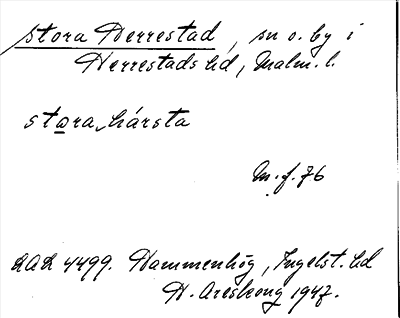 Stora Herrestad, sn o. by i
Herrestads hd, Malm. l.
stora hársta
M. f. 76
LAL 4499. Hammenhög, Ingelst. hd
H. Areskoug 1947.